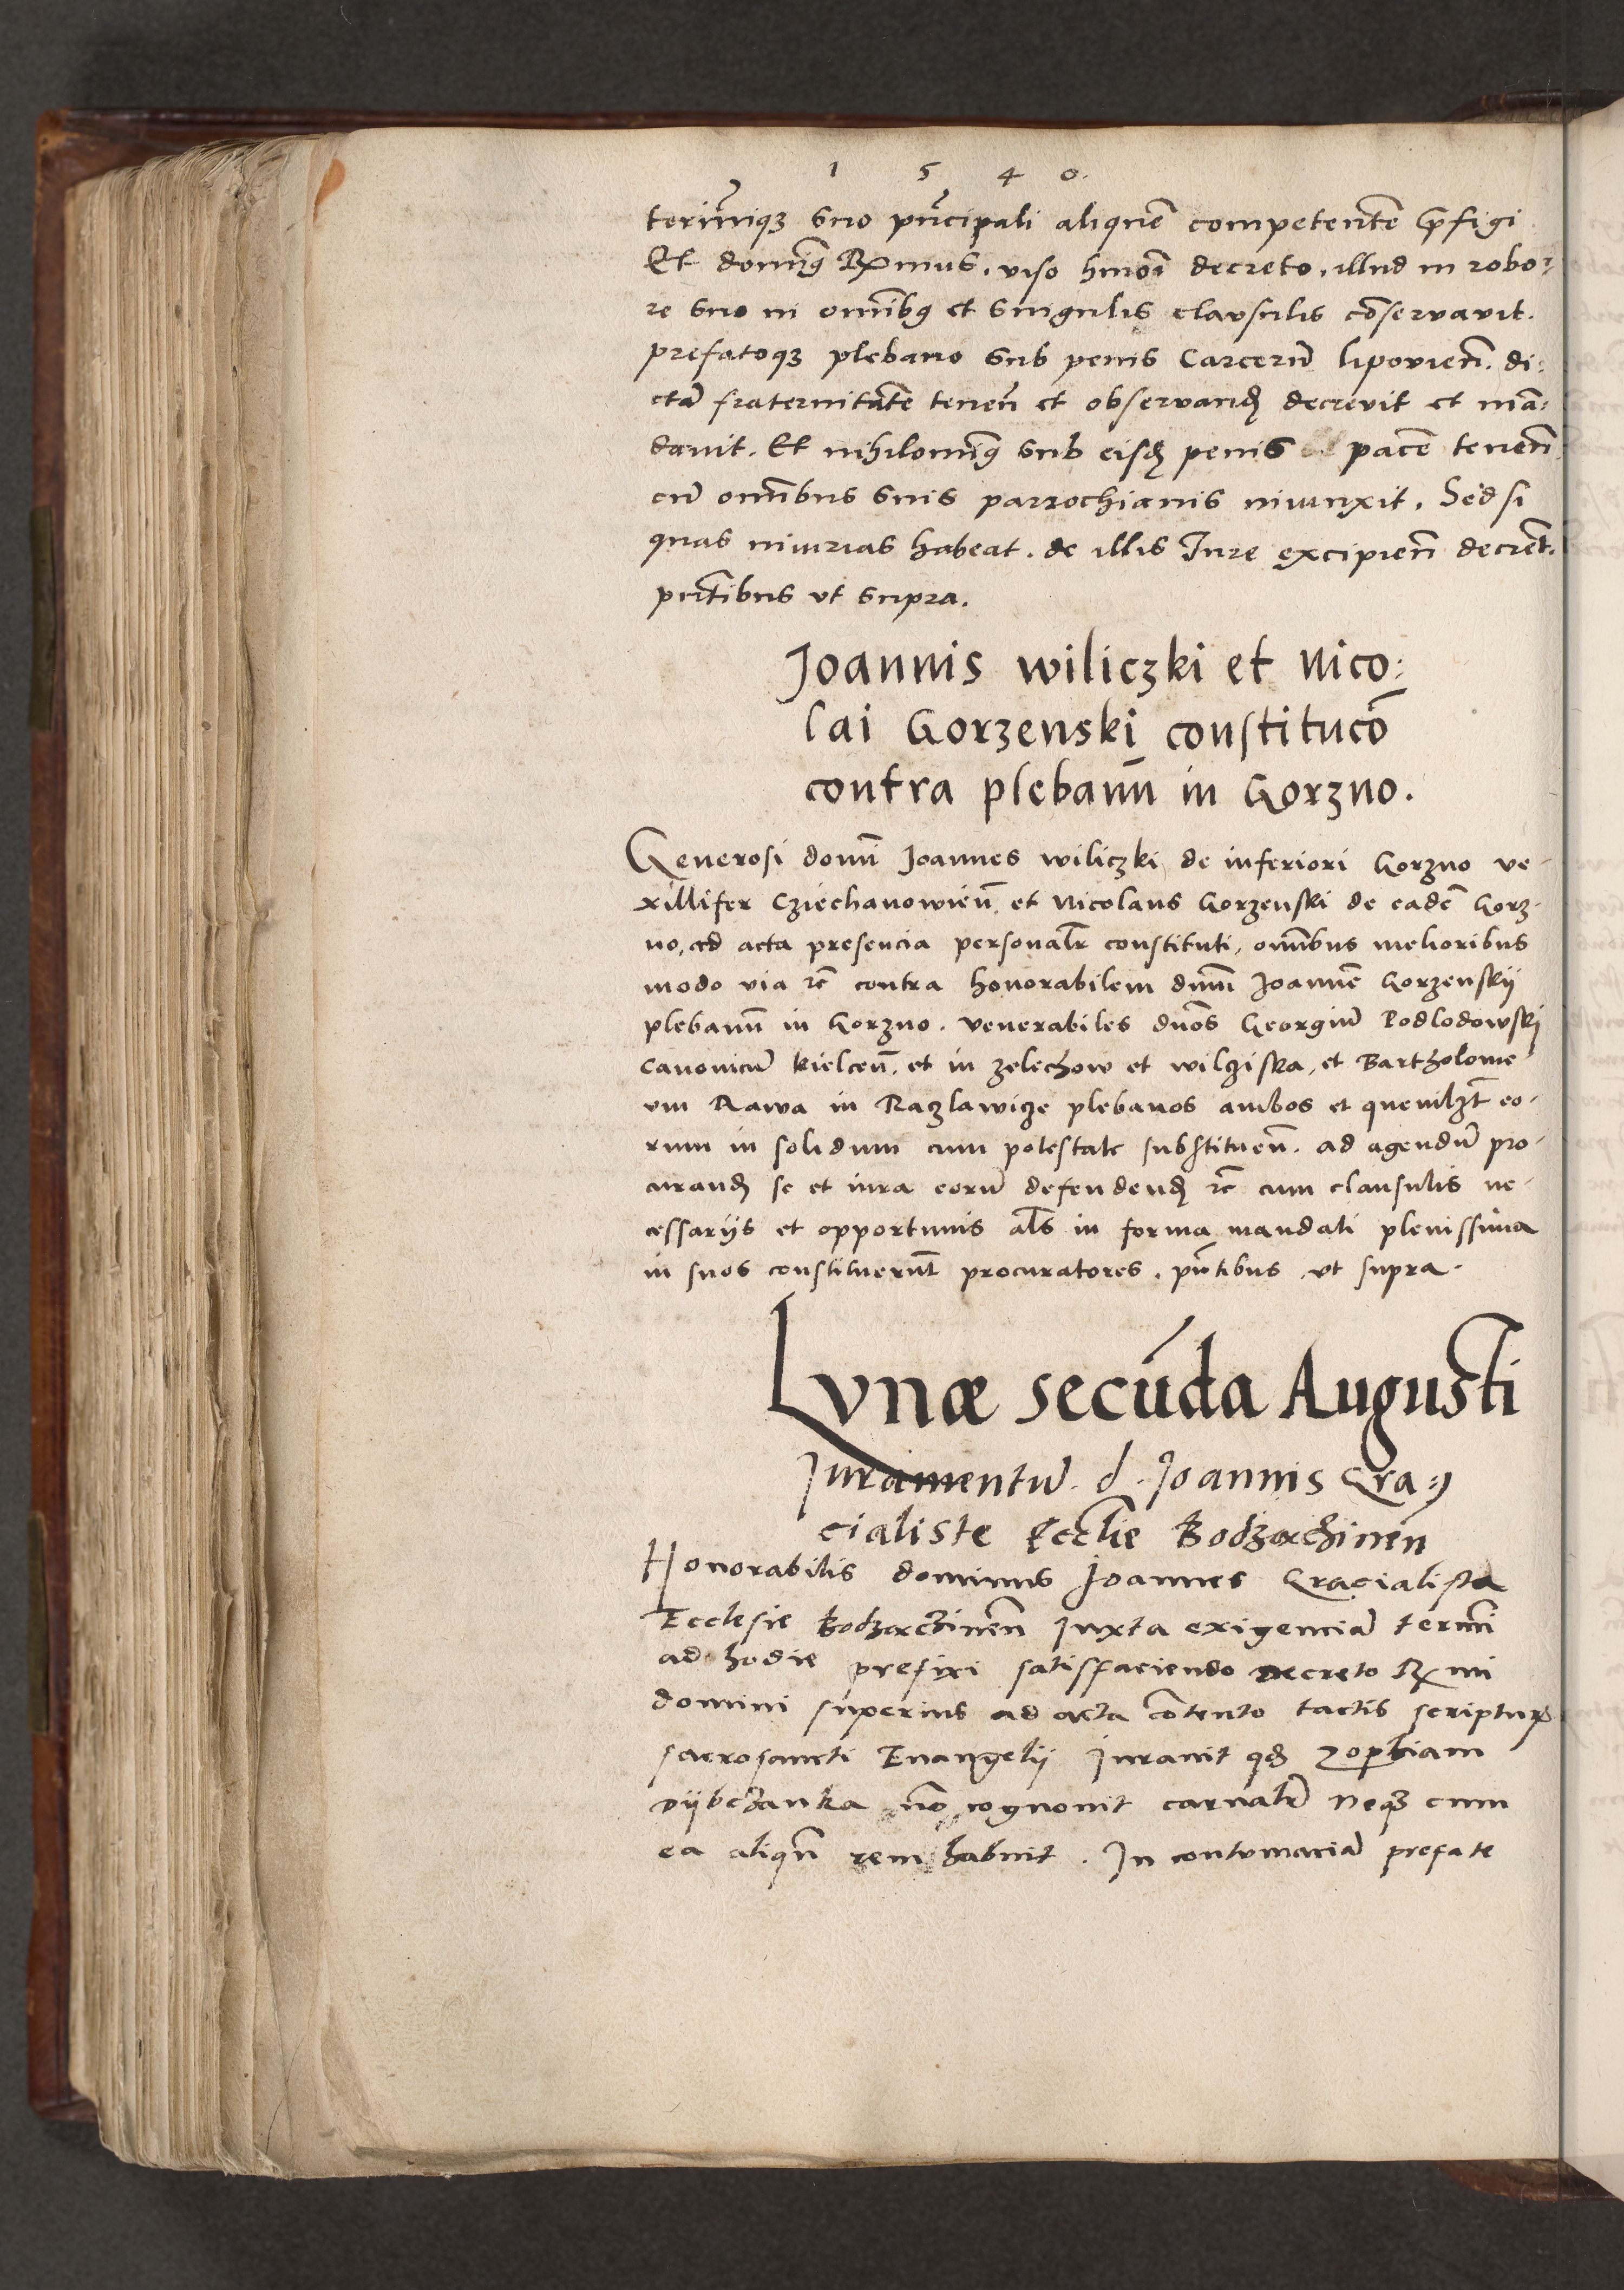 1 5 4 0.
terminūq₃ suo prīcipali aliquē competentē p̄figi
Et dominꝯ Rx̄mus. viso hmōi decreto. illud in robo⸗
re suo in omībꝯ et singulis clausulis cōservavit.
prefatoq₃ plebano sub penis carcerū lipovieñ. di⸗
ctā fraternitatē teneñ et observanđ decrevit et mā⸗
davit. Et nihilominꝯ sub eisđ penis pacē teneñ
cū omībus suis parrochianis iniunxit. Sed si
quas iniurias habeat. de illis Jure excipieñ decreṽt.
pñtibus vt supra.
Joannis wiliczki et Nico⸗
lai Gorzenski constitucō
contra plebanū in Gorzno.
Generosi domī Joannes wiliczki de inferiori Gorzno ve⸗
xillifer Cziechanowieñ. et Nicolaus Gorzenski de eadē Gorz⸗
no, ad acta presencia personalr̄ constituti, omībus melioribus
modo via rc̄ contra honorabilem dnūm Joannē Gorzenskij
plebanū in Gorzno. venerabiles dnōs Georgiū Podlodowski
canonicū kielceñ. et in zelechow et wilcziska, et Bartholome⸗
um Rawa in Raczlawicze plebanos ambos et quemlꝫt eo⸗
rum in solidum cum potestate substitueñ. ad agendū pro⸗
curanđ se et iura eorū defendenđ rc̄ cum clausulis ne⸗
cessarijs et opportunis als̄ in forma mandati plenissima
in suos constituerūt procuratores. pñtibus vt supra.
Lvnæ secūda Augusti
Juramentū. d. Joannis Gra⸗
cialiste Eccl̄ie Bodzāczineñ
Honorabilis dominus Joannes Gracialista
Ecclesie Bodzāczineñ Juxta exigenciā termī
ad hodie prefixi satisfaciendo decreto Rx̄mi
domini superius ad acta cōtento tactis scripturꝭ
sacrosancti Euangelij Juravit qđ zophiam
vijbranka nō cognouit carnalr̄ neq₃ cum
ea aliqñ rem habuit. In contumaciā prefate